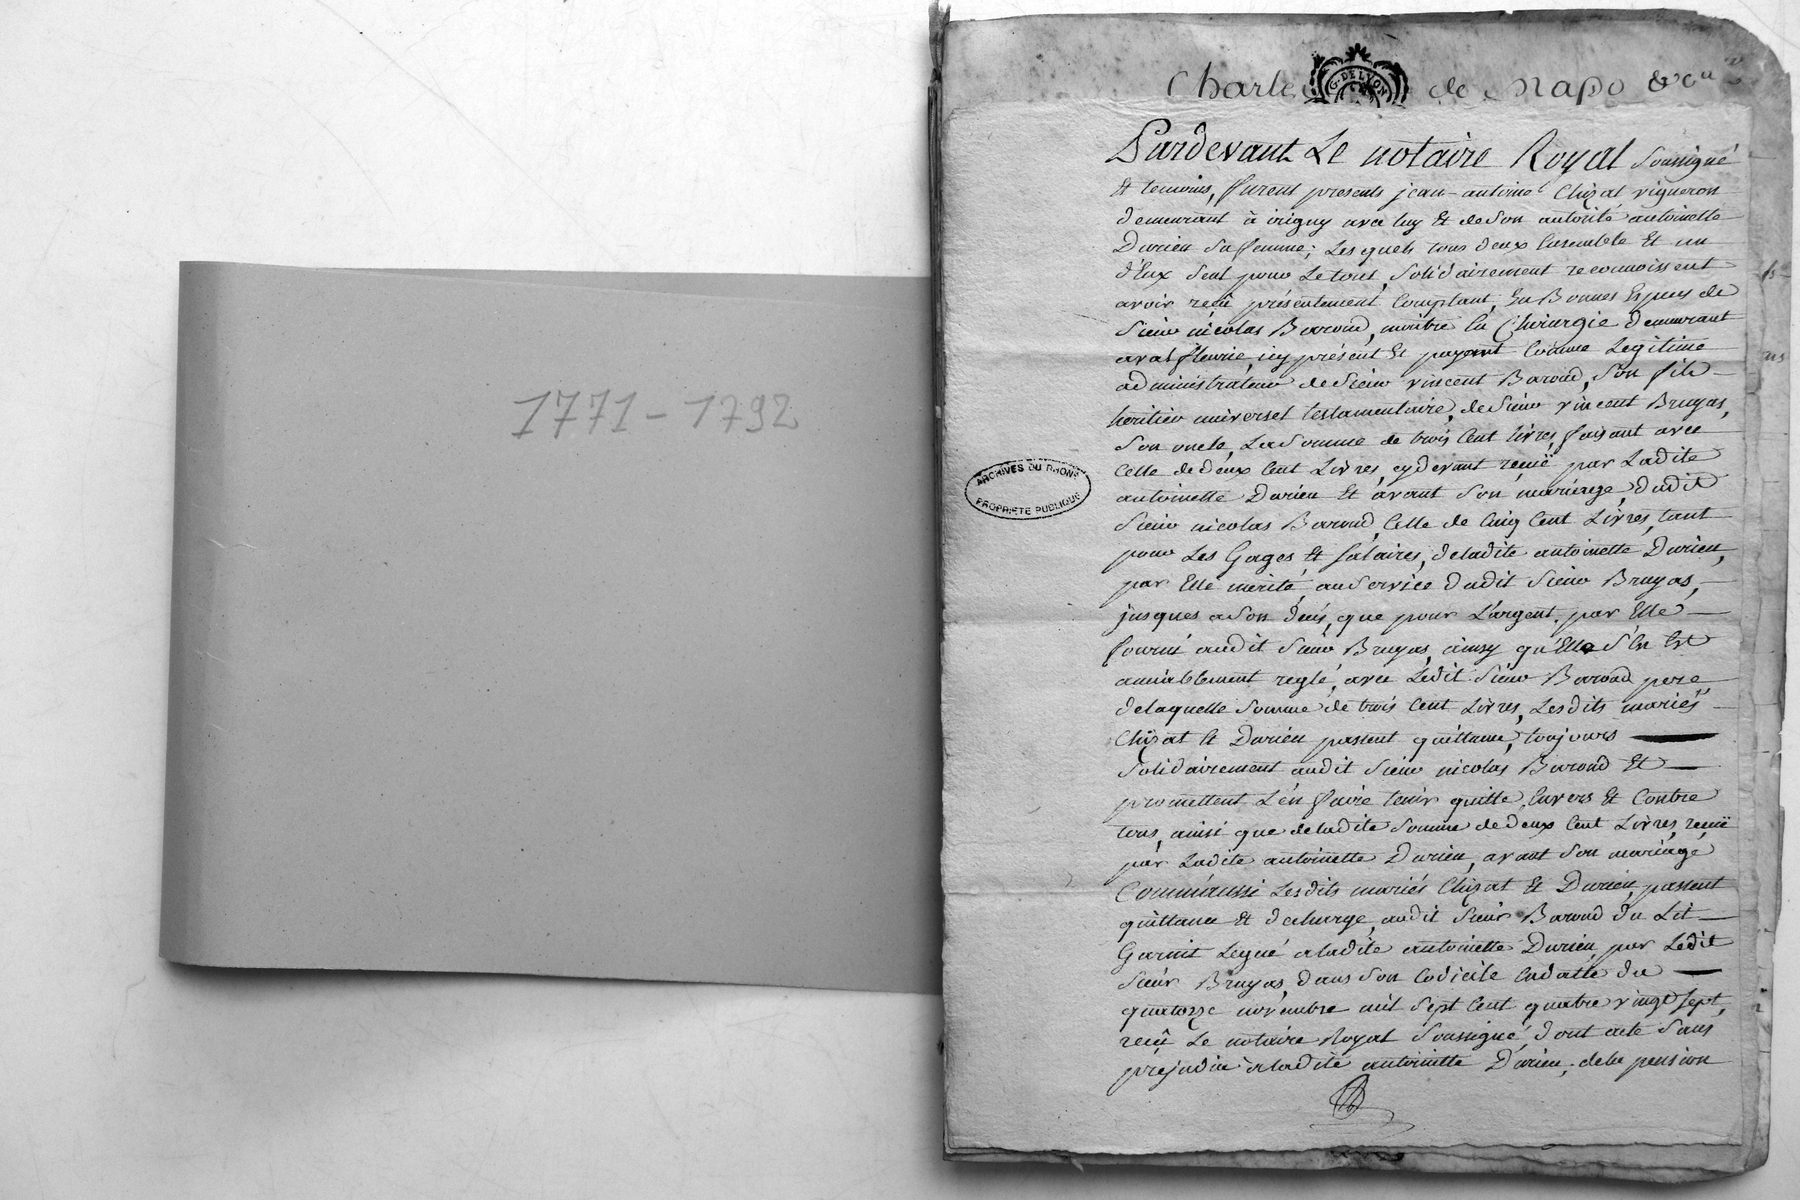 1771-1792
Charles de Mapo & Cie
G. DE LYON
Pardevant Le notaire Royal soussigné
Et temoins, furent presents jean-antoine Chizat vigneron
demeurant à irigny avec luy Et de son autorité antoinette
Durieu sa femme; Lesquels tous deux Ensemble Et un
d'Eux seul pour Le tout, solidairement reconnoissent
avoir reçû présentement Comptant, En Bonnes Especes de
sieur nicolas Baroud, maitre En Chirurgie demeurant
a valfleurie, icy présent Et payant Comme Legitime
administrateur de sieur vincent Baroud, son fils
heritier universel testamentaire, de sieur vincent Bruyas,
son oncle, La somme de trois Cent Livres, faisant avec
Celle de deux Cent Livres, cydevant reçuë par Ladite
antoinette Durieu Et avant son mariage, dudit
sieur nicolas Baroud, Celle de Cinq Cent Livres, tant
pour Les Gages Et salaires, deladite antoinette Durieu,
par Elle merité, au service dudit sieur Bruyas,
jusques a son decès, que pour L'argent, par Elle
fourni audit sieur Bruyas, ainsy qu'Elle s'En Est
amiablement reglé, avec Ledit sieur Baroud pere
delaquelle somme de trois Cent Livres, Lesdits mariés
Chizat Et Durieu passent quittance, toujours
solidairement audit sieur nicolas Baroud Et
promettent L'en faire tenir quitte Envers Et Contre
tous, ainsi que deladite somme de deux Cent Livres, reçuë
par Ladite antoinette Durieu, avant son mariage
Comm'aussi Lesdits mariés Chizat Et Durieu, passent
quittance Et decharge, audit sieur Baroud du Lit
Garnit Legué aladite antoinette Durieu par Ledit
sieur Bruyas, dans son Codicile Endatte du
quatorze novembre mil sept Cent quatre vingt sept,
reçû Le notaire Royal soussigné, dont acte sans
prejudice aladite antoinette Durieu, dela pension
ARCHIVES DU RHONE
PROPRIETE PUBLIQUE